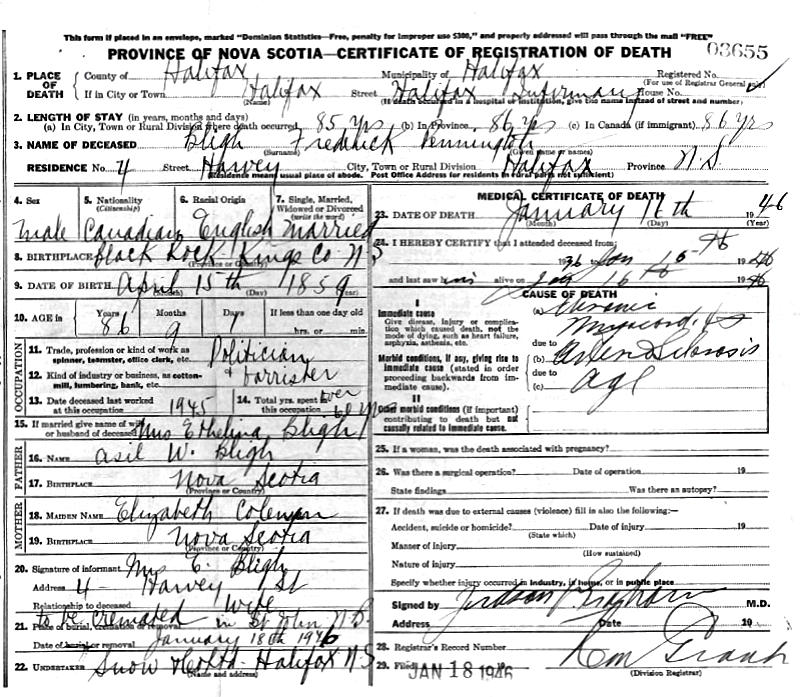 This form if placed in an envelope, marked "Dominion Statistics—Free, penalty for improper use $300," and properly addressed will pass through the mail "FREE"
PROVINCE OF NOVA SCOTIA—CERTIFICATE OF REGISTRATION OF DEATH 03655
1. PLACE OF DEATH County of Halifax Municipality of Halifax Registered No.
(For use of Registrar General only)
If in City or Town Halifax Street Halifax Infirmary House No.
(Name) (If death occurred in a hospital or institution, give the name instead of street and number)
2. LENGTH OF STAY (in years, months and days)
(a) In City, Town or Rural Division where death occurred 85 yrs (b) In Province 86 yrs (c) In Canada (if immigrant) 86 yrs
3. NAME OF DECEASED Bligh Frederick Pennington
(Surname) (Given name or names)
RESIDENCE No. 4 Street Harvey City, Town or Rural Division Halifax Province N.S.
(Residence means usual place of abode. Post Office Address for residents in rural parts not sufficient)
4. Sex 5. Nationality (Citizenship) 6. Racial Origin 7. Single, Married, Widowed or Divorced (write the word)
male Canadian English Married
8. BIRTHPLACE Black Rock Kings Co N S
(Province or Country)
9. DATE OF BIRTH April 15th 1859
(Month) (Day) (Year)
10. AGE in Years Months Days If less than one day old
86 9 1 hrs. or min.
OCCUPATION
11. Trade, profession or kind of work as spinner, teamster, office clerk, etc. Politician
12. Kind of industry or business, as cotton-mill, lumbering, bank, etc. & barrister
13. Date deceased last worked at this occupation 1945 14. Total yrs. spent in this occupation over 60 yrs
15. If married give name of wife or husband of deceased Mrs Ethelina Bligh
FATHER
16. NAME Asil W. Bligh
17. BIRTHPLACE Nova Scotia
(Province or Country)
MOTHER
18. MAIDEN NAME Elizabeth Coleman
19. BIRTHPLACE Nova Scotia
(Province or Country)
20. Signature of informant Mrs E. Bligh
Address 4 Harvey St
Relationship to deceased Wife
to be cremated in St John N.B.
21. Place of burial, cremation or removal
Date of burial or removal January 18th 1946
22. UNDERTAKER Snow & Co Ltd. Halifax N S
(Name and address)
MEDICAL CERTIFICATE OF DEATH
23. DATE OF DEATH January 16th 1946
(Month) (Day) (Year)
24. I HEREBY CERTIFY that I attended deceased from:
1936 Jan 16th 1946
and last saw him alive on Jan 16th 1946
CAUSE OF DEATH
I
Immediate cause
Give disease, injury or complication which caused death, not the mode of dying, such as heart failure, asphyxia, asthenia, etc.
(a) Chronic Myocarditis
due to
Morbid conditions, if any, giving rise to immediate cause (stated in order proceeding backwards from immediate cause)
(b) Arterio Sclerosis
due to
(c) Age
II
Other morbid conditions (if important) contributing to death but not causally related to immediate cause.
25. If a woman, was the death associated with pregnancy?
26. Was there a surgical operation? Date of operation 19
State findings Was there an autopsy?
27. If death was due to external causes (violence) fill in also the following:—
Accident, suicide or homicide? Date of injury 19
(State which)
Manner of injury
(How sustained)
Nature of injury
Specify whether injury occurred in industry, in home, or in public place
Signed by M.D.
Address Date 19
28. Registrar's Record Number
29. Filed JAN 18 1946
(Division Registrar)